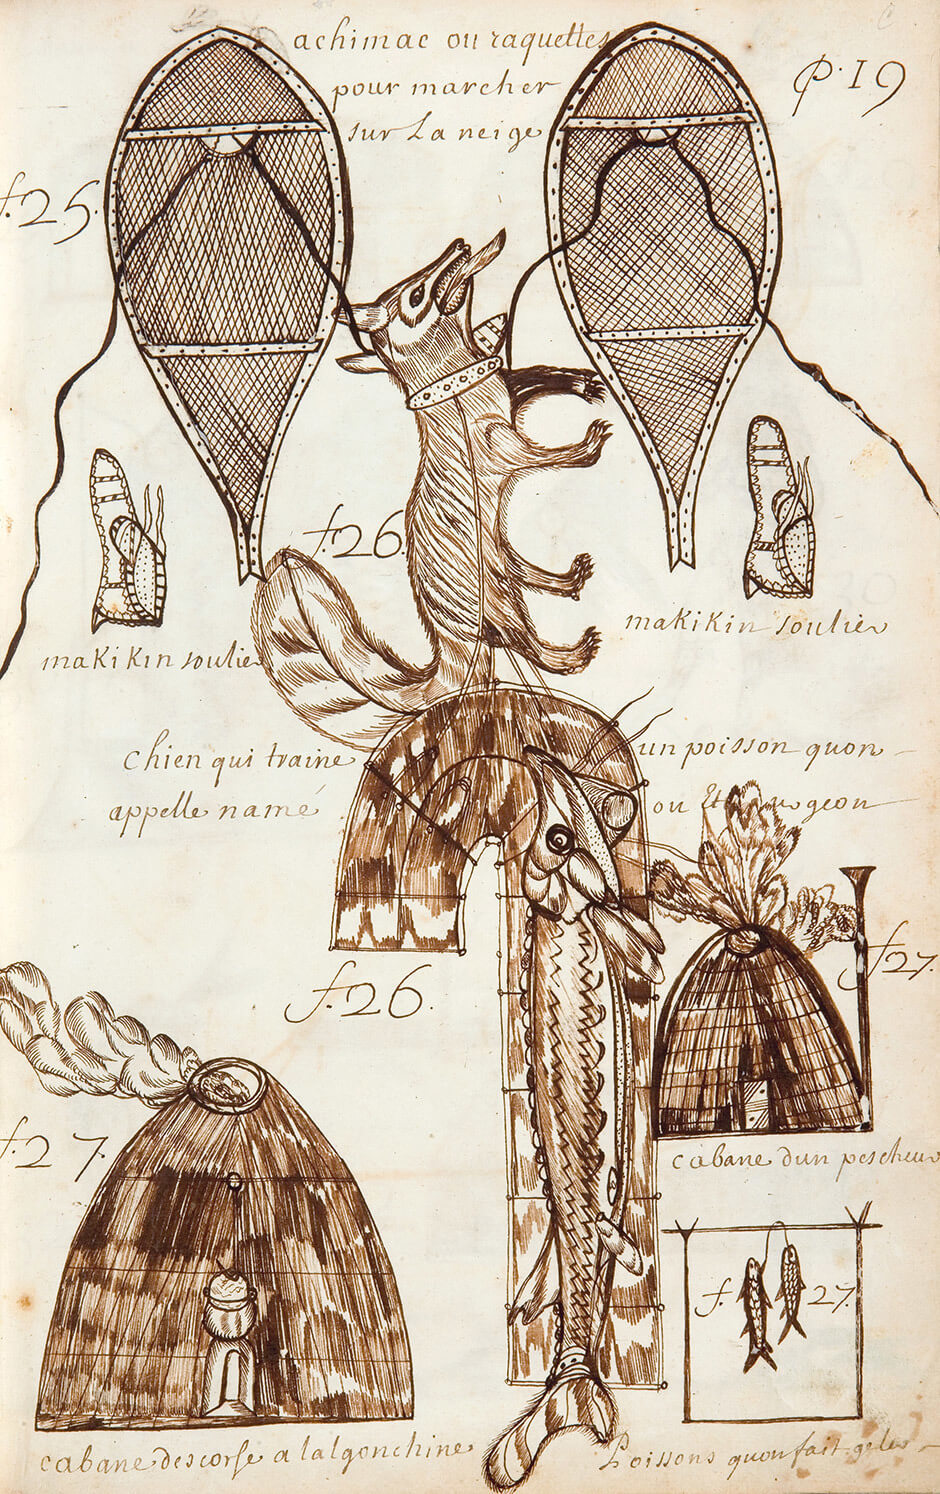 achimac ou raquettes
pour marcher
sur La neige
P. 19
f. 25.
f. 26.
makikin soulier
makikin soulier
chien qui traine
un poisson quon
appelle namé
ou geon
f. 26.
f. 27.
f. 27.
cabane dun pescheur
f. 27.
cabane descorse a lalgonchine
Poissons quon fait geler